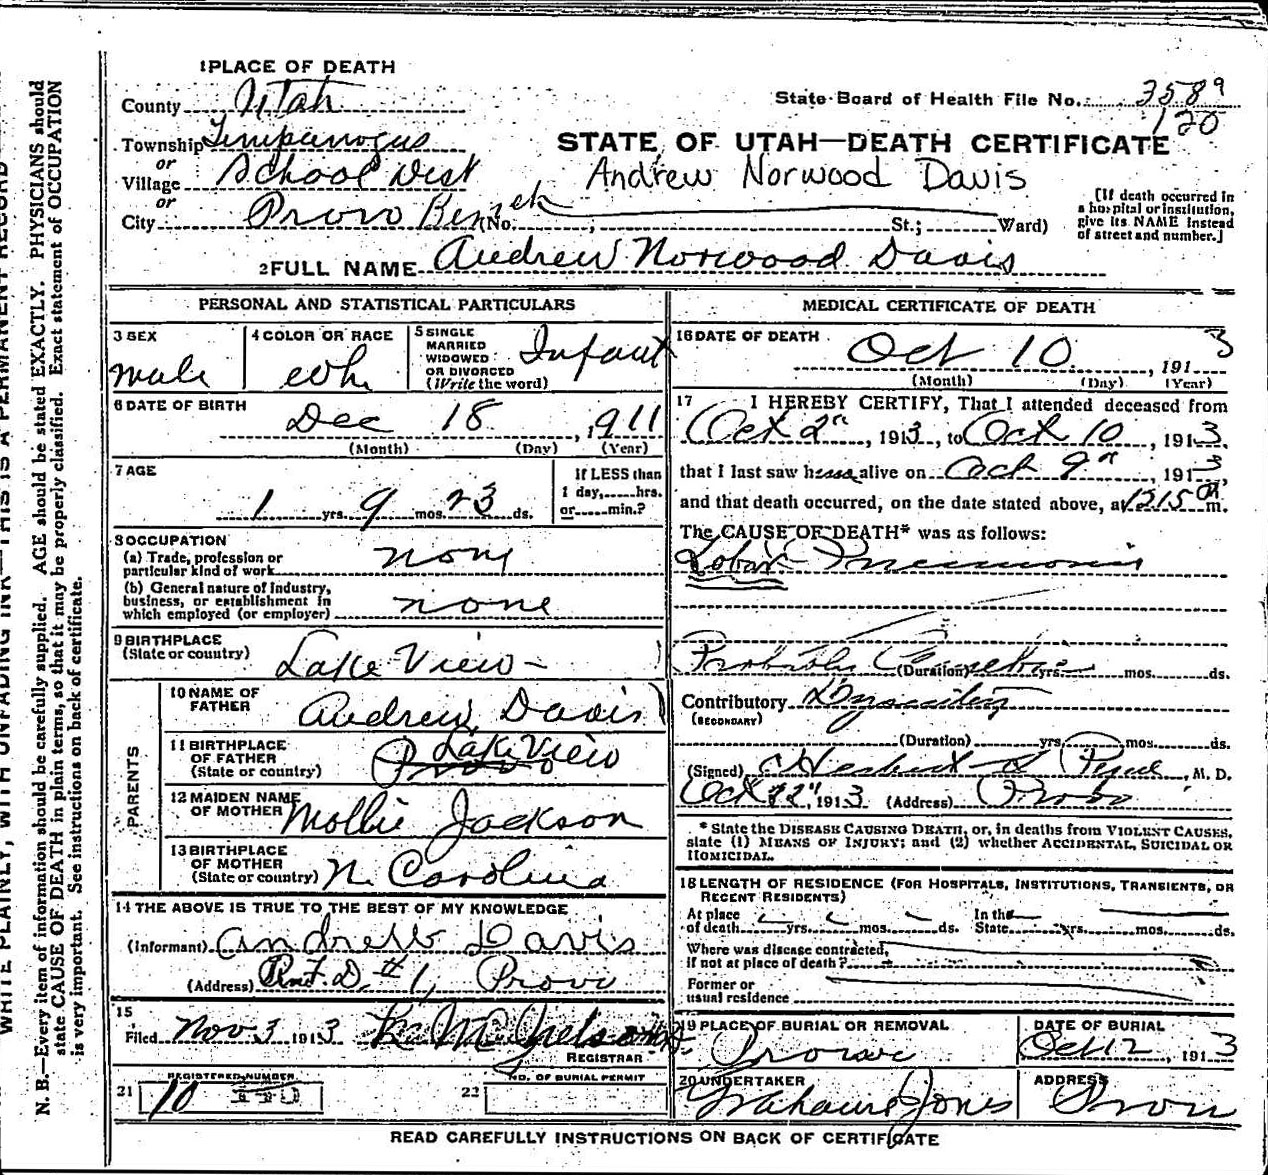 1 PLACE OF DEATH
County Utah
State Board of Health File No. 3589
120
Township Timpanogus
STATE OF UTAH—DEATH CERTIFICATE
or
Village School Dist
Andrew Norwood Davis
or
City Provo Bench (No. St.; Ward)
[If death occurred in
a hospital or institution,
give its NAME instead
of street and number.]
2 FULL NAME Andrew Norwood Davis
PERSONAL AND STATISTICAL PARTICULARS
3 SEX
male
4 COLOR OR RACE
wh
5 SINGLE
MARRIED
WIDOWED
OR DIVORCED
(Write the word)
Infant
6 DATE OF BIRTH
Dec 18, 1911
(Month) (Day) (Year)
7 AGE
1 yrs. 9 mos. 23 ds.
If LESS than
1 day, hrs.
or min.?
8 OCCUPATION
(a) Trade, profession or
particular kind of work none
(b) General nature of industry,
business, or establishment in
which employed (or employer) none
9 BIRTHPLACE
(State or country) Lake View
PARENTS
10 NAME OF
FATHER Andrew Davis
11 BIRTHPLACE
OF FATHER
(State or country) Provo Lake View
12 MAIDEN NAME
OF MOTHER Mollie Jackson
13 BIRTHPLACE
OF MOTHER
(State or country) N. Carolina
14 THE ABOVE IS TRUE TO THE BEST OF MY KNOWLEDGE
(Informant) Andrew Davis
(Address) R.F.D. #1, Provo
15
Filed Nov 3 1913
REGISTRAR
REGISTERED NUMBER
21 10
NO. OF BURIAL PERMIT
22
MEDICAL CERTIFICATE OF DEATH
16 DATE OF DEATH
Oct 10, 1913
(Month) (Day) (Year)
17 I HEREBY CERTIFY, That I attended deceased from
Oct 2", 1913, to Oct 10, 1913,
that I last saw him alive on Oct 9", 1913,
and that death occurred, on the date stated above, at 1215 a m.
The CAUSE OF DEATH* was as follows:
Lobar Pneumonia
Probably (Duration) yrs. mos. ds.
Contributory Dysentery
(SECONDARY)
(Duration) yrs. mos. ds.
(Signed) Herbert S Pyne, M. D.
Oct 1913 (Address) Provo
* State the DISEASE CAUSING DEATH, or, in deaths from VIOLENT CAUSES,
state (1) MEANS OF INJURY; and (2) whether ACCIDENTAL, SUICIDAL OR
HOMICIDAL.
18 LENGTH OF RESIDENCE (FOR HOSPITALS, INSTITUTIONS, TRANSIENTS, OR
RECENT RESIDENTS)
At place
of death yrs. mos. ds.
In the
State yrs. mos. ds.
Where was disease contracted,
if not at place of death?
Former or
usual residence
19 PLACE OF BURIAL OR REMOVAL
Provo
DATE OF BURIAL
Oct 12, 1913
20 UNDERTAKER
Jones
ADDRESS
Provo
READ CAREFULLY INSTRUCTIONS ON BACK OF CERTIFICATE
WRITE PLAINLY, WITH UNFADING INK—THIS IS A PERMANENT RECORD
N. B.—Every item of information should be carefully supplied. AGE should be stated EXACTLY. PHYSICIANS should
state CAUSE OF DEATH in plain terms, so that it may be properly classified. Exact statement of OCCUPATION
is very important. See instructions on back of certificate.